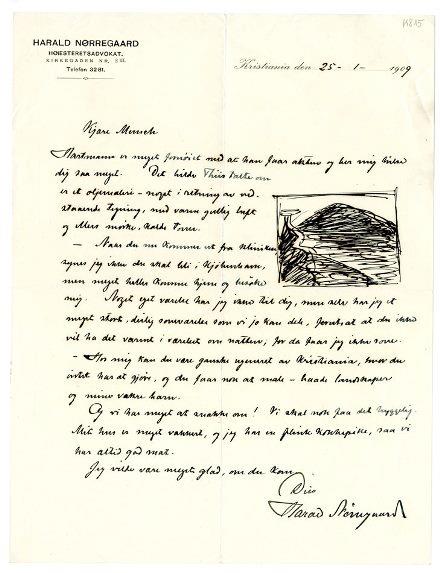 K 815
HARALD NØRREGAARD
HØIESTERETSADVOKAT.
KIRKEGADEN NR.
Telefon 3281.
Kristiania den 25 - 1 - 1909
Kjære Munch
er meget fornøiet med at han faar aktien og ber mig hilse
dig saa meget. Det bilde Thiis talte om
er et oljemaleri - noget i retning av ved-
staaende tegning, med varm gullig luft
og ellers mørke, kolde
- Naar du nu kommer ut fra kliniken
synes jeg ikke du skal bli i Kjøbenhavn,
men meget heller komme hjem og besøke
mig. Noget eget værelse har jeg ikke til dig, men selv har jeg et
meget stort, deilig soveværelse som vi jo kan dele, forutsat at du ikke
vil ha det varmt i værelset om natten, for da faar jeg ikke sove.
- Hos mig kan du være ganske ugenert av Kristiania, hvor du
intet har at gjøre, og du faar nok at male - baade landskaper
og mine vakre barn.
Og vi har meget at snakke om! Vi skal nok faa det hyggelig.
Mit hus er meget vakkert, og jeg har en flink kokkepike, saa vi
har altid god mat.
Jeg vilde være meget glad, om du kom.
Din
Harald Nørregaard